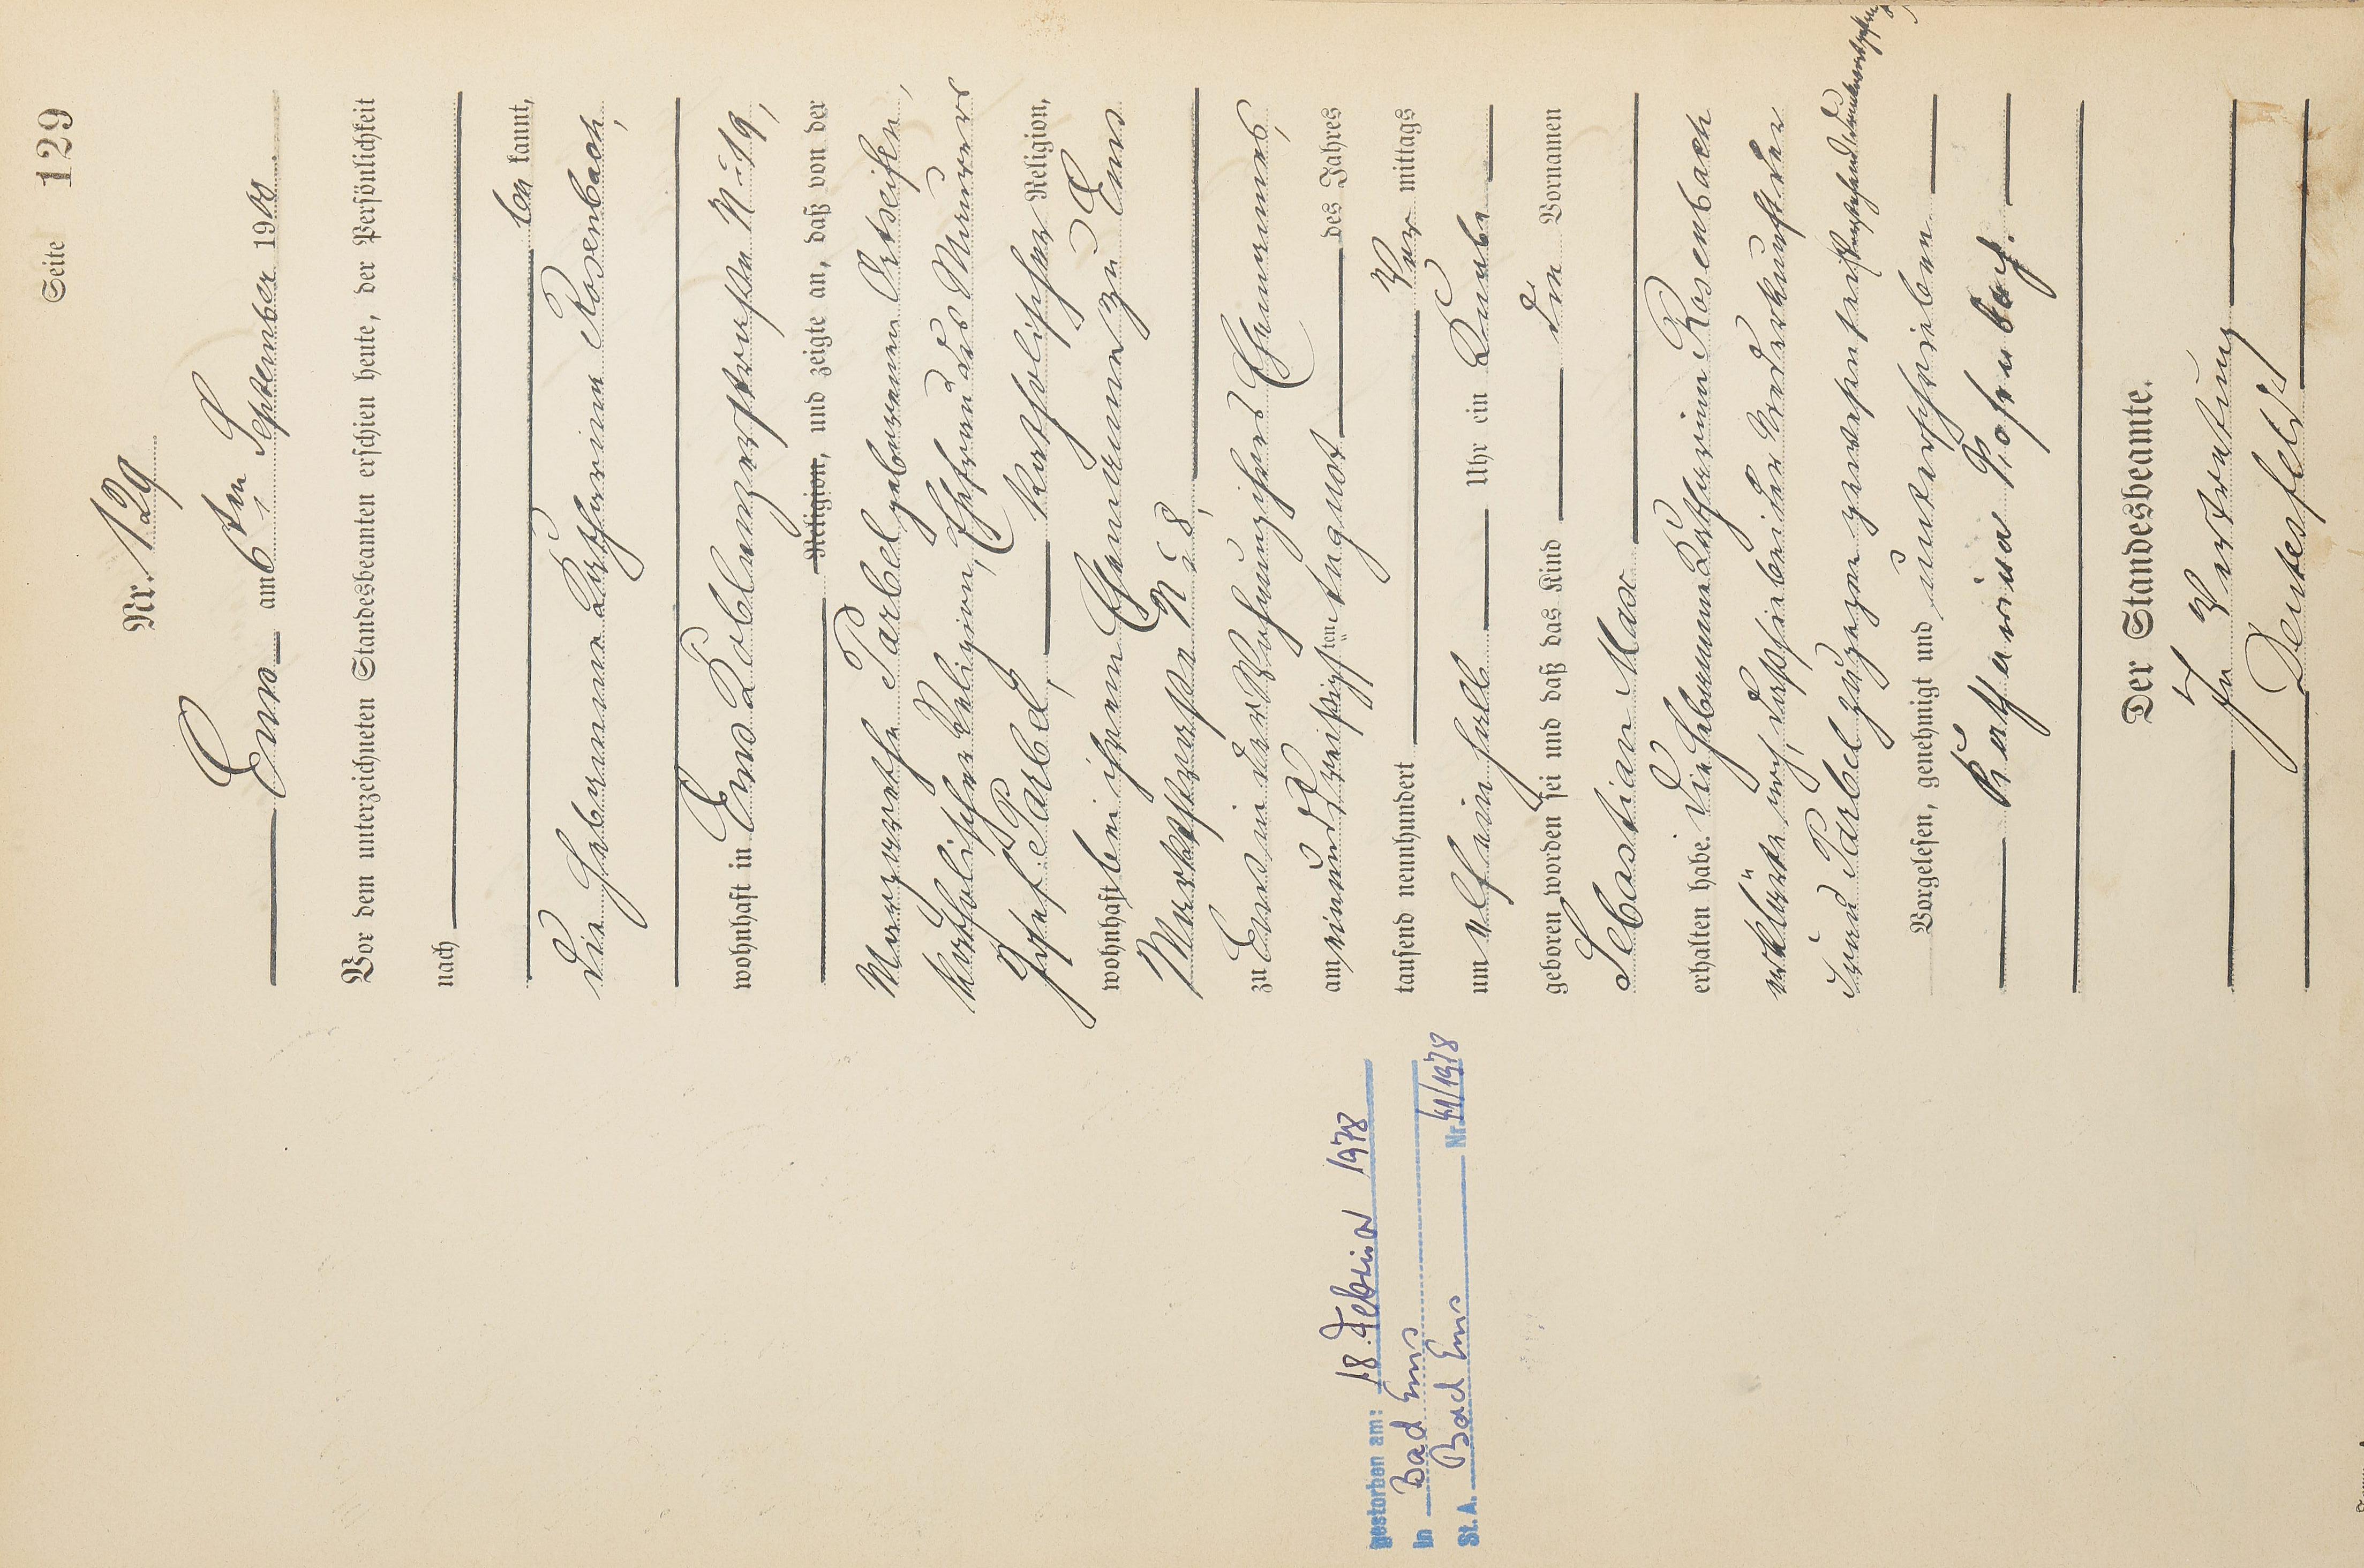 Seite 129
Nr. 129
Ems am 6ten September 19
Vor dem unterzeichneten Standesbeamten erschien heute, der Persönlichkeit
nach
be kannt,
die Hebamme Katharina Rosenbach,
wohnhaft in Ems Coblenzerstraße No 19,
Religion, und zeigte an, daß von der
Margarethe Parbel geborenen Ortseifen,
katholischer Religion, Ehefrau des Maurers
Josef Parbel, katholischer Religion,
wohnhaft bei ihrem Ehemanne zu Ems
Marktstraße No 8,
zu Ems in der Wohnung ihres Ehemannes,
am einunddreißigsten August des Jahres
tausend neunhundert Vor mittags
um elfeinhalb Uhr ein Knabe
geboren worden sei und daß das Kind die Vornamen
Sebastian Max
erhalten habe. Die Hebamme Katharina Rosenbach
erklärte noch, daß sie bei der Niederkunft der
Frau Parbel zugegen gewesen sei.
Vorgelesen, genehmigt und unterschrieben
Katharina Rosenbach.
Der Standesbeamte.
In Vertretung
gestorben am: 18. Februar 1978
in Bad Ems
St. A. Bad Ems Nr. 41/1978